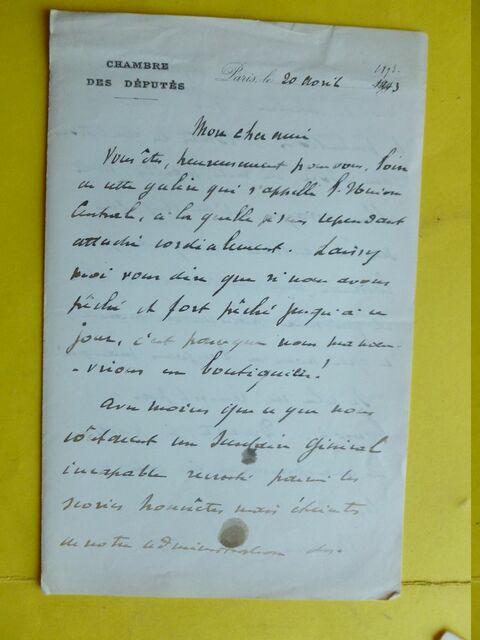 CHAMBRE
DES DÉPUTÉS
Paris, le 20 avril
Mon cher ami
Vous êtes, heureusement pour vous, loin
de cette galère qui s'appelle l'Union
Centrale, à laquelle je suis cependant
attaché cordialement. Laissez
moi vous dire que si nous avons
pêché et fort pêché jusqu'à ce
jour, c'est parceque nous manoeu-
-vrions en boutiquiers!
Avec moins que ce que nous
coûtaient un Secrétaire Général
incapable recruté parmi les
scories honnêtes mais éteintes
de notre administration des